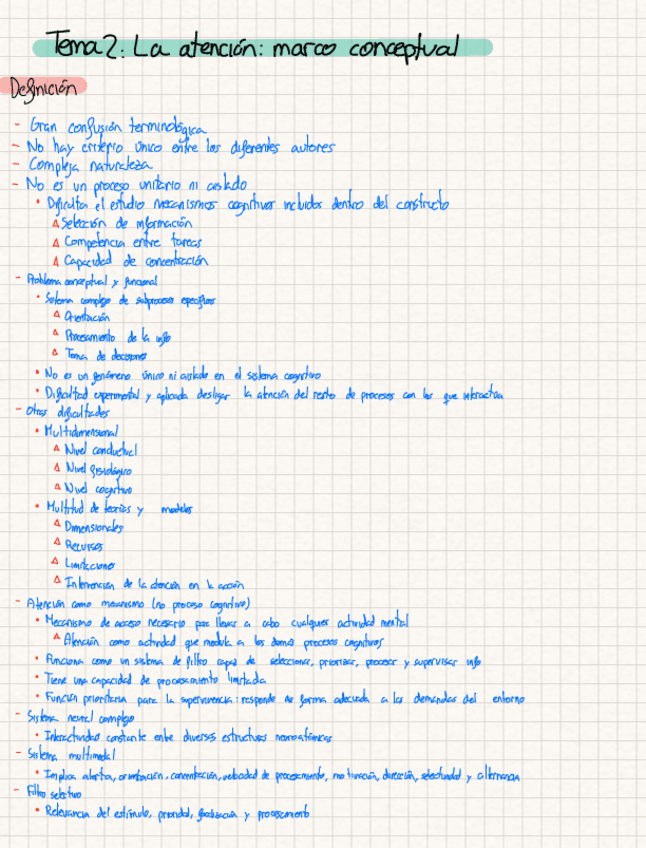 Tema 2: La atención: marco conceptual
Definición
- Gran confusión terminológica
- No hay criterio único entre los diferentes autores
- Compleja naturaleza
- No es un proceso unitario ni aislado
• Dificulta el estudio mecanismos cognitivos incluidos dentro del constructo
Δ Selección de información
Δ Competencia entre tareas
Δ Capacidad de concentración
- Problema conceptual y funcional
• Sistema complejo de subprocesos específicos
Δ Orientación
Δ Procesamiento de la info
Δ Toma de decisiones
• No es un fenómeno único ni aislado en el sistema cognitivo
• Dificultad experimental y aplicada desligar la atención del resto de procesos con los que interactúa
- Otras dificultades
• Multidimensional
Δ Nivel conductual
Δ Nivel fisiológico
Δ Nivel cognitivo
• Multitud de teorías y modelos
Δ Dimensionales
Δ Recursos
Δ Limitaciones
Δ Intervención de la atención en la acción
- Atención como mecanismo (no proceso cognitivo)
• Mecanismo de acceso necesario para llevar a cabo cualquier actividad mental
Δ Atención como actividad que modula a los demás procesos cognitivos
• Funciona como un sistema de filtro capaz de seleccionar, priorizar, procesar y supervisar info
• Tiene una capacidad de procesamiento limitada
• Función prioritaria para la supervivencia: responde de forma adecuada a las demandas del entorno
- Sistema neural complejo
• Interactividad constante entre diversas estructuras neuroatómicas
- Sistema multimodal
• Implica alerta, orientación, concentración, velocidad de procesamiento, motivación, dirección, selectividad y alternancia
- Filtro selectivo
• Relevancia del estímulo, prioridad, focalización y procesamiento